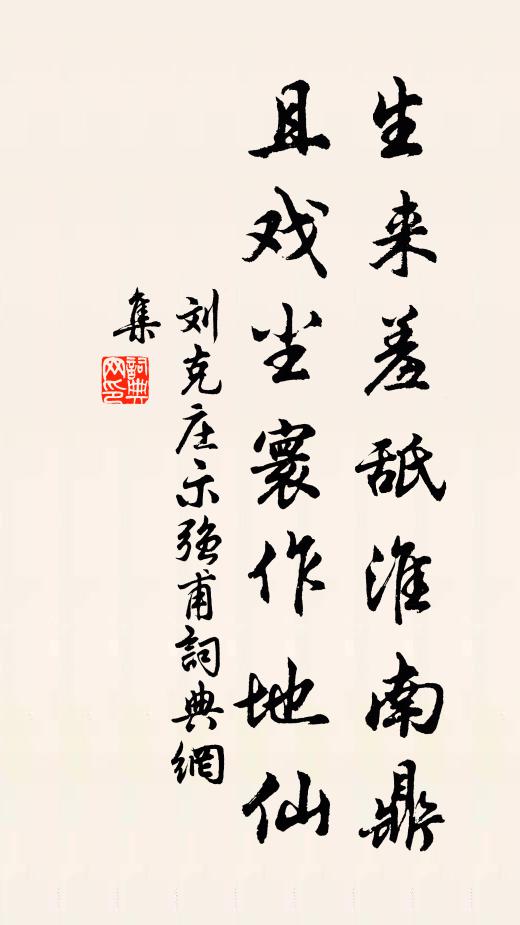 生来羞舐淮南鼎
且戏尘寰作地仙
刘克庄示强甫詞典網
集
詞典
网印